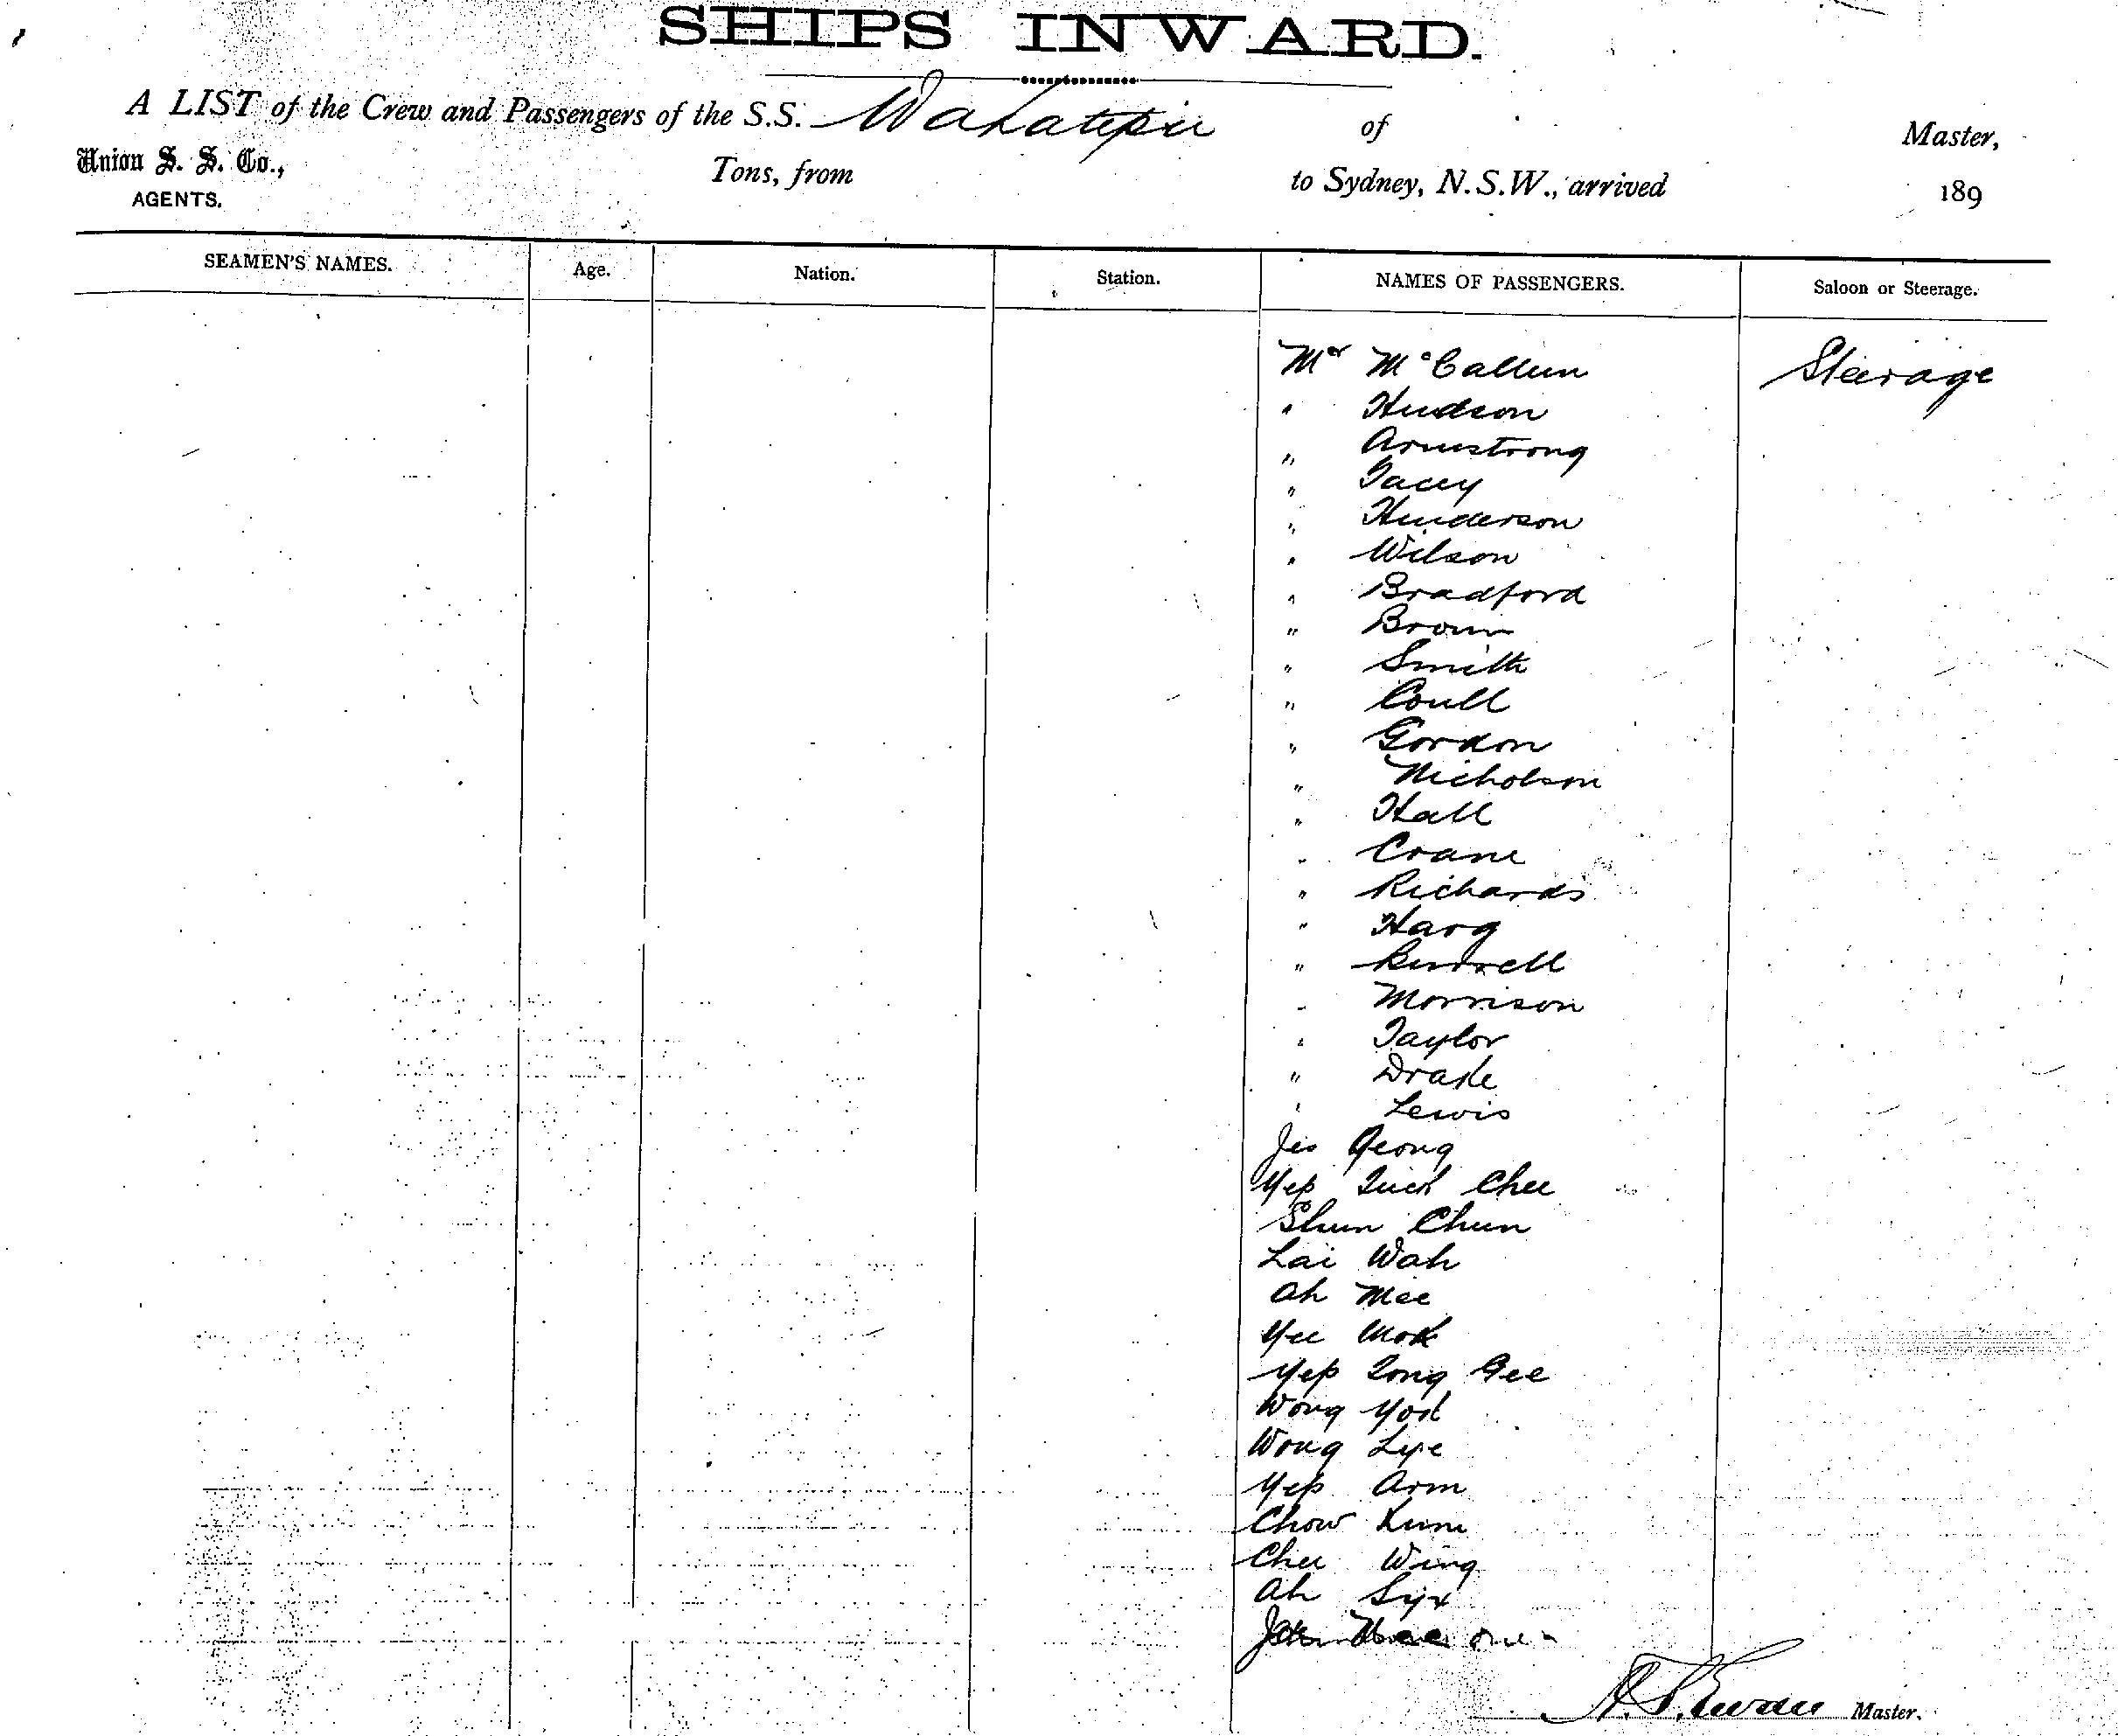 SHIPS INWARD.
A LIST of the Crew and Passengers of the S.S. Wakatipu of Master,
Union S. S. Co., Tons, from to Sydney, N.S.W., arrived 189
AGENTS.
SEAMEN'S NAMES. Age. Nation. Station. NAMES OF PASSENGERS. Saloon or Steerage.
Mr McCallum Steerage
" Hudson
" Armstrong
" Tacey
" Henderson
" Wilson
" Bradford
" Brown
" Smith
" Coull
" Gordon
" Nicholson
" Hall
" Crane
" Richards
" Harg
"
" Morrison
" Taylor
" Drake
" Lewis
Geong
Yep Chee
Shum Chun
Lai Wah
Ah Mee
Yee Mok
Yep Gee
Wong
Wong Lye
Yep Arm
Chow
Wing
Ah
Master.